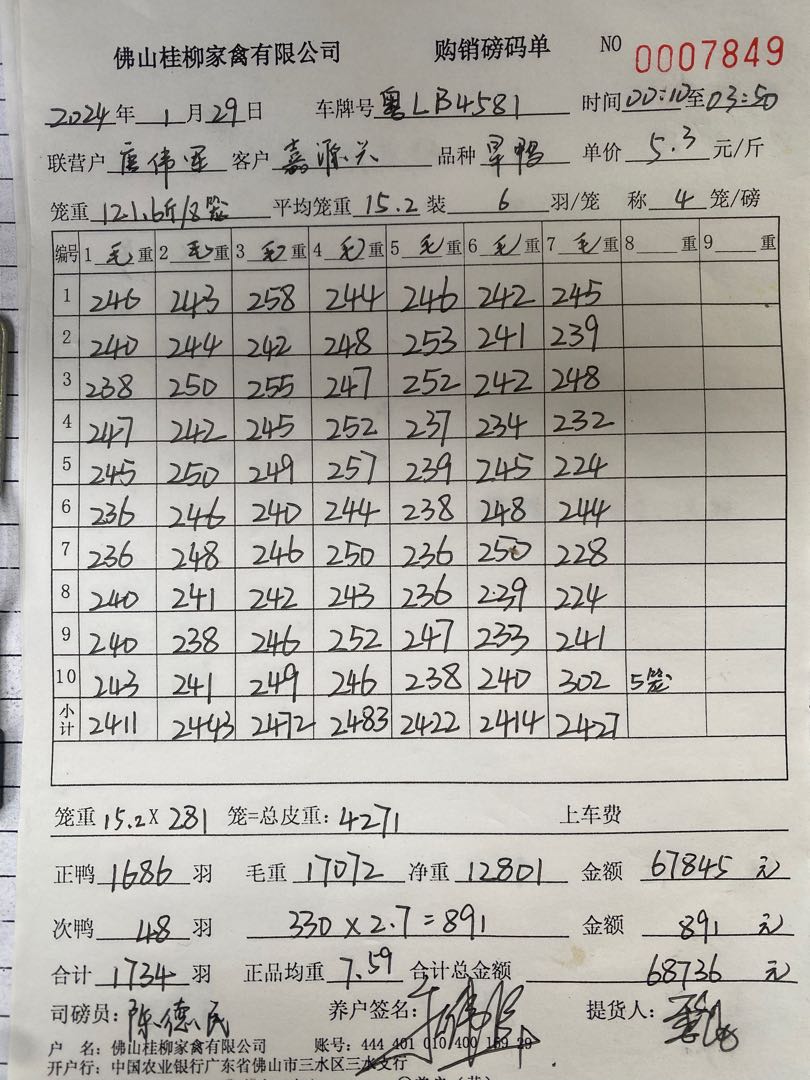 佛山桂柳家禽有限公司 购销磅码单 NO 0007849
2024年 1 月 29 日 车牌号 粤LB4581 时间 00:10 至 03:50
联营户 唐伟军 客户 嘉滁兴 品种 旱鸭 单价 5.3 元/斤
笼重 121.6斤/8笼 平均笼重 15.2 装 6 羽/笼 称 4 笼/磅
编号 1 毛 重 2 毛 重 3 毛 重 4 毛 重 5 毛 重 6 毛 重 7 毛 重 8 重 9 重
1 246 243 258 244 246 242 245
2 240 244 242 248 253 241 239
3 238 250 255 247 252 242 248
4 247 242 245 252 237 234 232
5 245 250 249 257 239 245 224
6 236 246 240 244 238 248 244
7 236 248 246 250 236 250 228
8 240 241 242 243 236 239 224
9 240 238 246 252 247 233 241
10 243 241 249 246 238 240 302 5笼
小计 2411 2443 2472 2483 2422 2414 2427
笼重 15.2 X 281 笼=总皮重: 4271 上车费
正鸭 1686 羽 毛重 17072 净重 12801 金额 67845 元
次鸭 48 羽 330 X 2.7 = 891 金额 891 元
合计 1734 羽 正品均重 7.59 合计总金额 68736 元
司磅员: 陈德民 养户签名: 提货人:
户 名: 佛山桂柳家禽有限公司 账号: 444 401 010 400 159 29
开户行: 中国农业银行广东省佛山市三水区三水支行